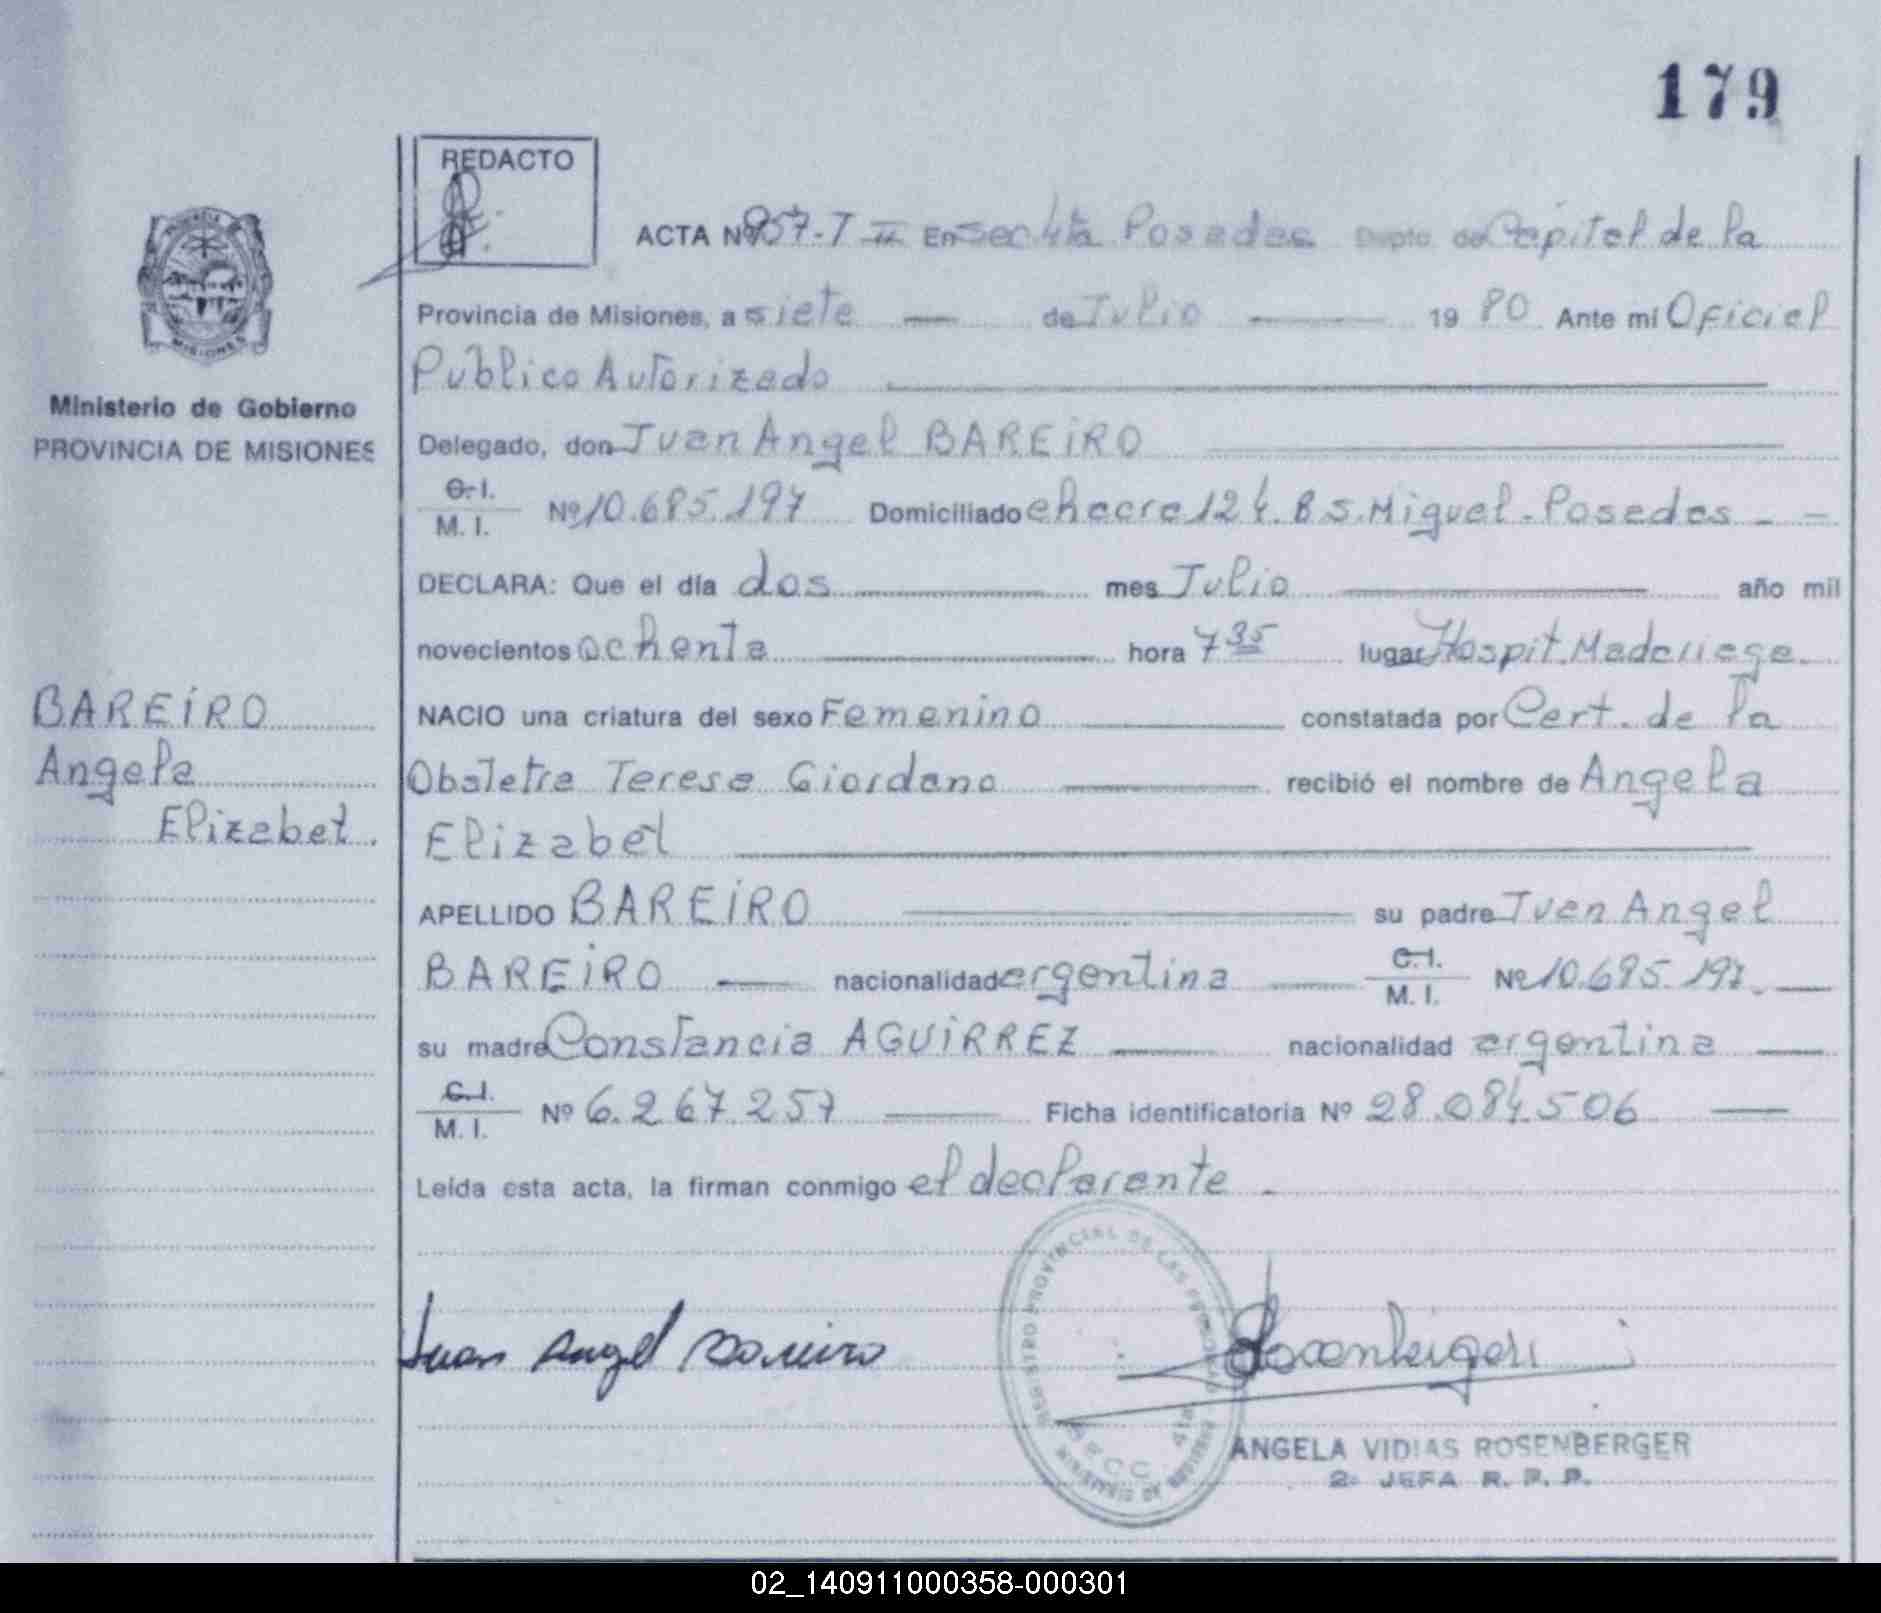 179
REDACTO
ACTA Nº 957-T II En Sec 4ta Posadas Dpto de Capital de la
Provincia de Misiones, a siete de Julio 1980 Ante mi Oficial
Público Autorizado
Ministerio de Gobierno
PROVINCIA DE MISIONES
Delegado, don Juan Angel BAREIRO
C. I.
M. I. Nº 10.685.197 Domiciliado chacra 124. B S. Miguel - Posadas - -
DECLARA: Que el día dos mes Julio año mil
novecientos ochenta hora 7 35 lugar Hospit. Madariaga.
BAREIRO
Angela
Elizabet.
NACIO una criatura del sexo Femenino constatada por Cert. de la
Obstetra Teresa Giordano recibió el nombre de Angela
Elizabet
APELLIDO BAREIRO su padre Juan Angel
BAREIRO nacionalidad argentina C. I.
M. I. Nº 10.695.197.
su madre Constancia AGUIRREZ nacionalidad argentina
C. I.
M. I. Nº 6.267.257 Ficha identificatoria Nº 28.084.506
Leída esta acta, la firman conmigo el declarante -
REGISTRO PROVINCIAL DE LAS PERSONAS
4ta
Juan Angel Bareiro
ANGELA VIDIAS ROSENBERGER
2· JEFA R. P. P.
02_140911000358-000301